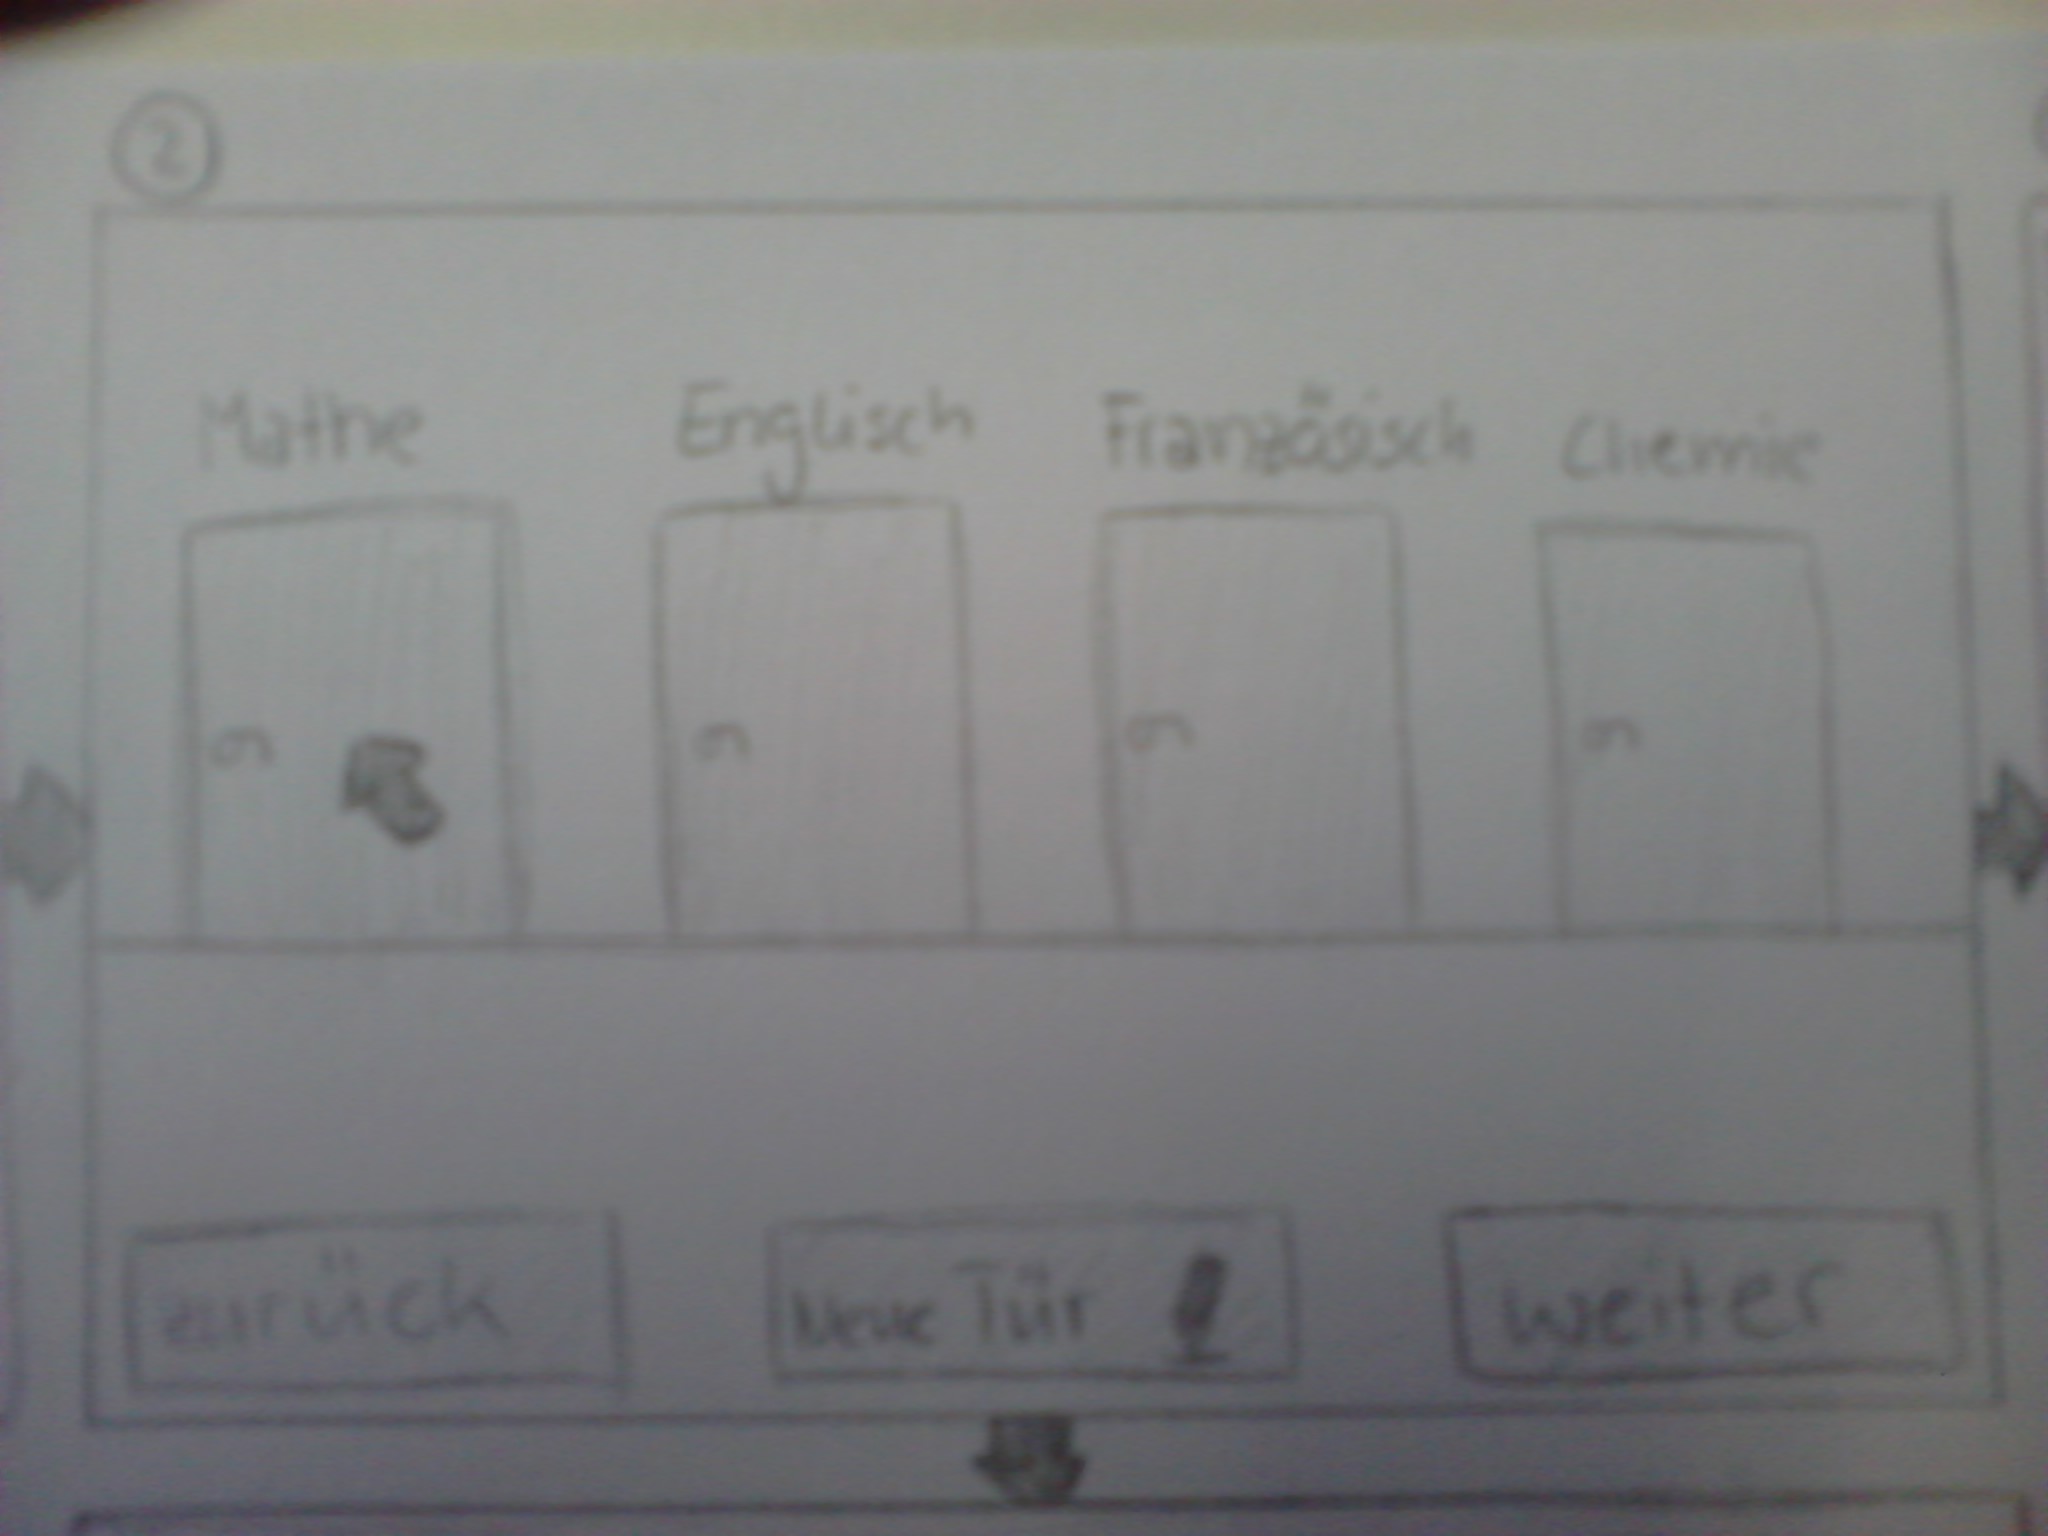 2
Mathe Englisch Französisch Chemie
zurück Neue Tür weiter